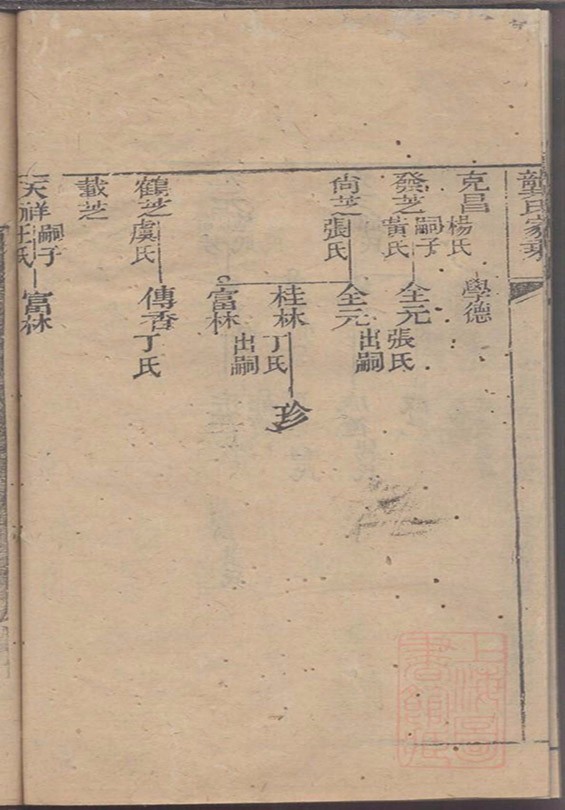 龔氏家乘
克昌 楊氏
學德
發芝 嗣子 黃氏
全元 張氏
尙芝 張氏
全元 出嗣
桂林 丁氏
珍
富林 出嗣
鶴芝 虞氏
傳香 丁氏
載芝
天祥 嗣子 汪氏
富林
上海圖書館藏